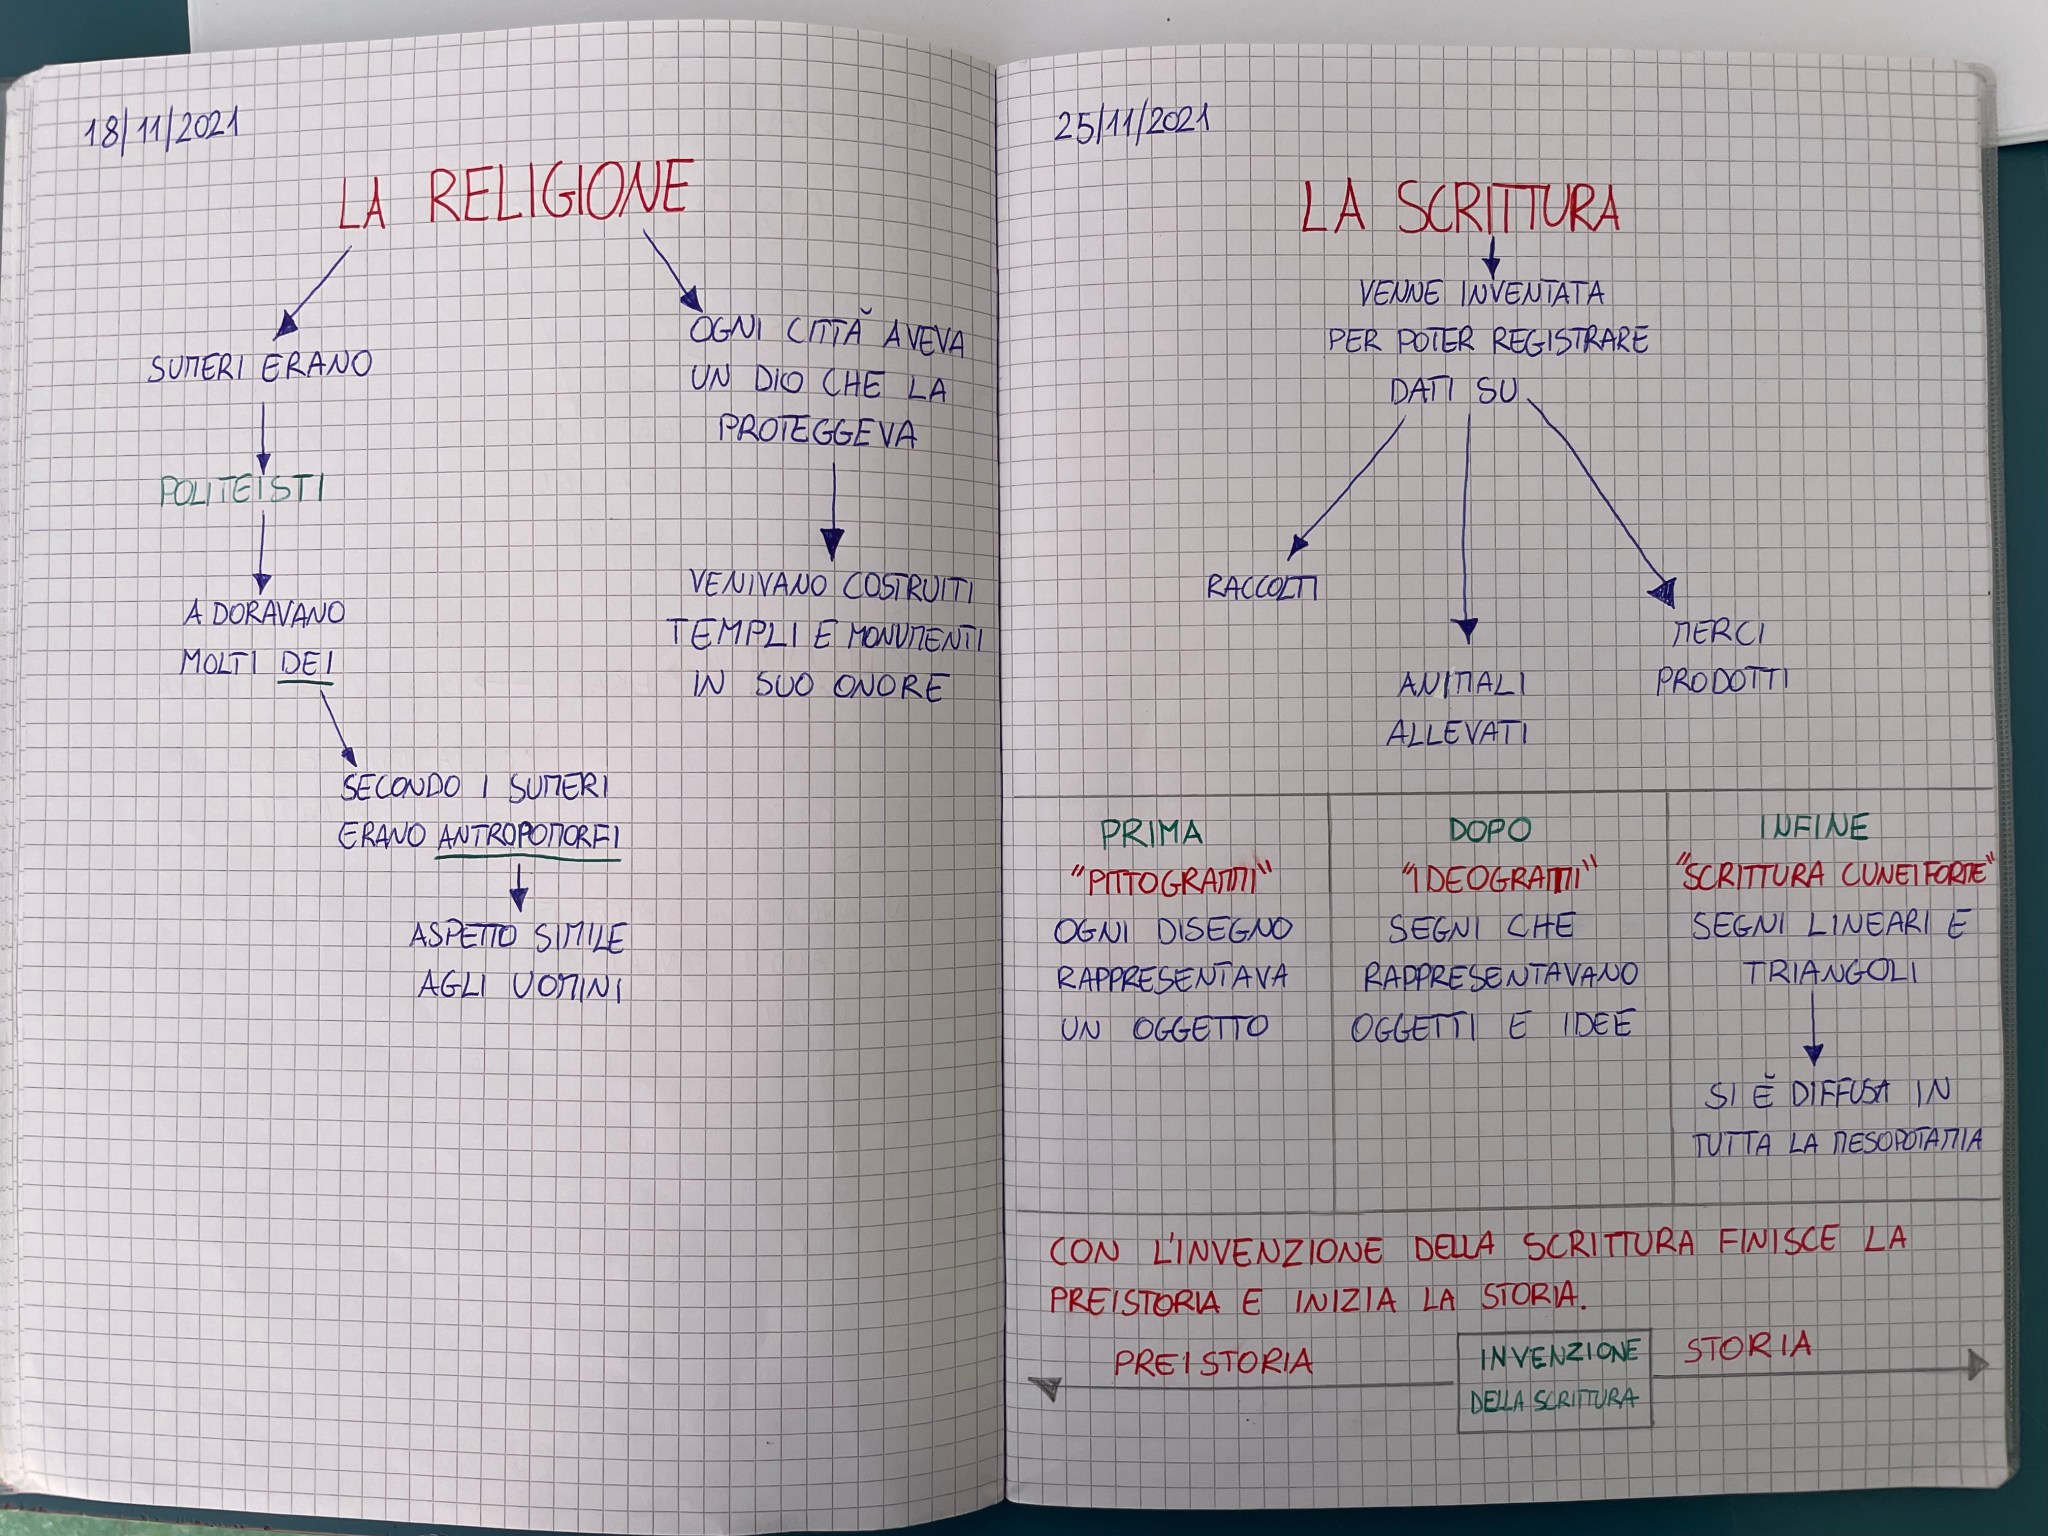 18/11/2021
LA RELIGIONE
SUMERI ERANO
POLITEISTI
ADORAVANO
MOLTI DEI
SECONDO I SUMERI
ERANO ANTROPOMORFI
ASPETTO SIMILE
AGLI UOMINI
OGNI CITTÀ AVEVA
UN DIO CHE LA
PROTEGGEVA
VENIVANO COSTRUITI
TEMPLI E MONUMENTI
IN SUO ONORE
25/11/2021
LA SCRITTURA
VENNE INVENTATA
PER POTER REGISTRARE
DATI SU
RACCOLTI
ANIMALI
ALLEVATI
MERCI
PRODOTTI
PRIMA
"PITTOGRAMMI"
OGNI DISEGNO
RAPPRESENTAVA
UN OGGETTO
DOPO
"IDEOGRAMMI"
SEGNI CHE
RAPPRESENTAVANO
OGGETTI E IDEE
INFINE
"SCRITTURA CUNEIFORME"
SEGNI LINEARI E
TRIANGOLI
SI È DIFFUSA IN
TUTTA LA MESOPOTAMIA
CON L'INVENZIONE DELLA SCRITTURA FINISCE LA
PREISTORIA E INIZIA LA STORIA.
PREISTORIA
INVENZIONE
DELLA SCRITTURA
STORIA